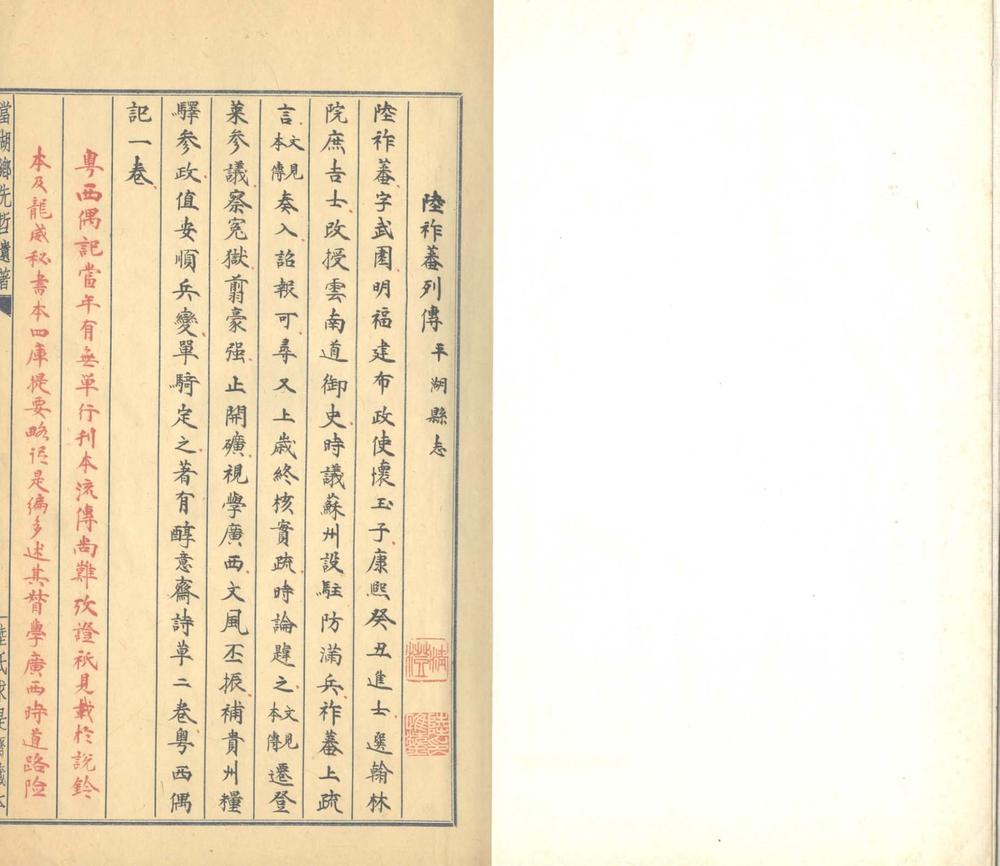 陸祚蕃列傳 平湖縣志
陸祚蕃字武園明福建布政使懷玉子康熙癸丑進士選翰林
院庶吉士改授雲南道御史時議蘇州設駐防滿兵祚蕃上疏
言文見本傳奏入詔報可尋又上歲終核實疏時論韙之文見本傳遷登
萊參議察冤獄翦豪强止開礦視學廣西文風丕振補貴州糧
驛參政值安順兵變單騎定之著有醇意齋詩草二卷粵西偶
記一卷
粵西偶記當年有無單行刊本流傳尚難攷證祇見載於說鈴
本及龍威秘書本四庫提要略謂是編多述其督學廣西時道路險
當湖鄉先哲遺著
陸氏求是齋藏本